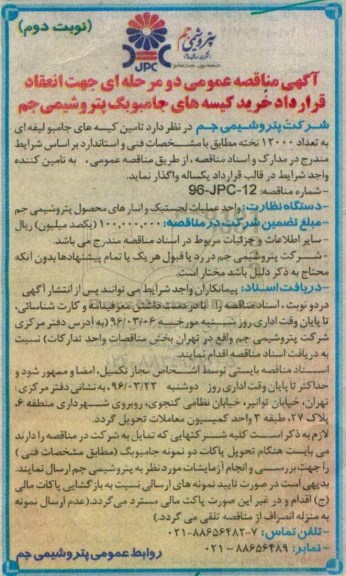 (نوبت دوم)
پتروشیمی جم
JPC
آگهی مناقصه عمومی دو مرحله ای جهت انعقاد
قرارداد خرید کیسه های جامبوبگ پتروشیمی جم
شرکت پتروشیمی جم در نظر دارد تامین کیسه های جامبو لیفه ای
به تعداد ۱۲۰۰۰ تخته مطابق با مشخصات فنی و استاندارد بر اساس شرایط
مندرج در مدارک و اسناد مناقصه ، از طریق مناقصه عمومی، به تامین کننده
واجد شرایط در قالب قرارداد یکساله واگذار نماید.
- شماره مناقصه: 96-JPC-12
- دستگاه نظارت: واحد عملیات لجستیک و انبارهای محصول پتروشیمی جم
- مبلغ تضمین شرکت در مناقصه: ۱۰۰,۰۰۰,۰۰۰ (یکصد میلیون) ریال
- سایر اطلاعات و جزئیات مربوط در اسناد مناقصه مندرج می باشد.
- شرکت پتروشیمی جم در رد یا قبول هر یک یا تمام پیشنهادها بدون آنکه
محتاج به ذکر دلیل باشد مختار است.
- دریافت اسناد: پیمانکاران واجد شرایط می توانند پس از انتشار آگهی
در دو نوبت ، اسناد مناقصه را با در دست داشتن معرفینامه و کارت شناسائی،
تا پایان وقت اداری روز شنبه مورخه ۹۶/۰۳/۰۶ (به آدرس دفتر مرکزی
شرکت پتروشیمی جم واقع در تهران بخش مناقصات واحد تدارکات) نسبت
به دریافت اسناد مناقصه اقدام نمایند.
اسناد مناقصه بایستی توسط اشخاص مجاز تکمیل، امضا و ممهور شود و
حداکثر تا پایان وقت اداری روز دوشنبه ۹۶/۰۳/۲۲ ، به نشانی دفتر مرکزی:
تهران، خیابان توانیر، خیابان نظامی گنجوی، روبروی شهرداری منطقه ۶،
پلاک ۲۷، طبقه ۳ واحد کمیسیون معاملات تحویل گردد.
لازم به ذکر است کلیه شرکتهایی که تمایل به شرکت در مناقصه را دارند
می بایست هنگام تحویل پاکات دو نمونه جامبوبگ (مطابق مشخصات فنی )
را جهت بررسی و انجام آزمایشات مورد نظر به پتروشیمی جم ارسال نمایند.
بدیهی است در صورت تایید نمونه های ارسالی نسبت به بازگشایی پاکات مالی
(ج) اقدام و در غیر این صورت پاکت مالی مسترد می گردد.(عدم ارسال نمونه
به منزله انصراف از مناقصه تلقی می گردد.)
- تلفن تماس: ۷-۸۸۶۵۶۴۸۲-۰۲۱
- نمابر: ۸۸۶۵۶۴۸۹ - ۰۲۱
روابط عمومی پتروشیمی جم